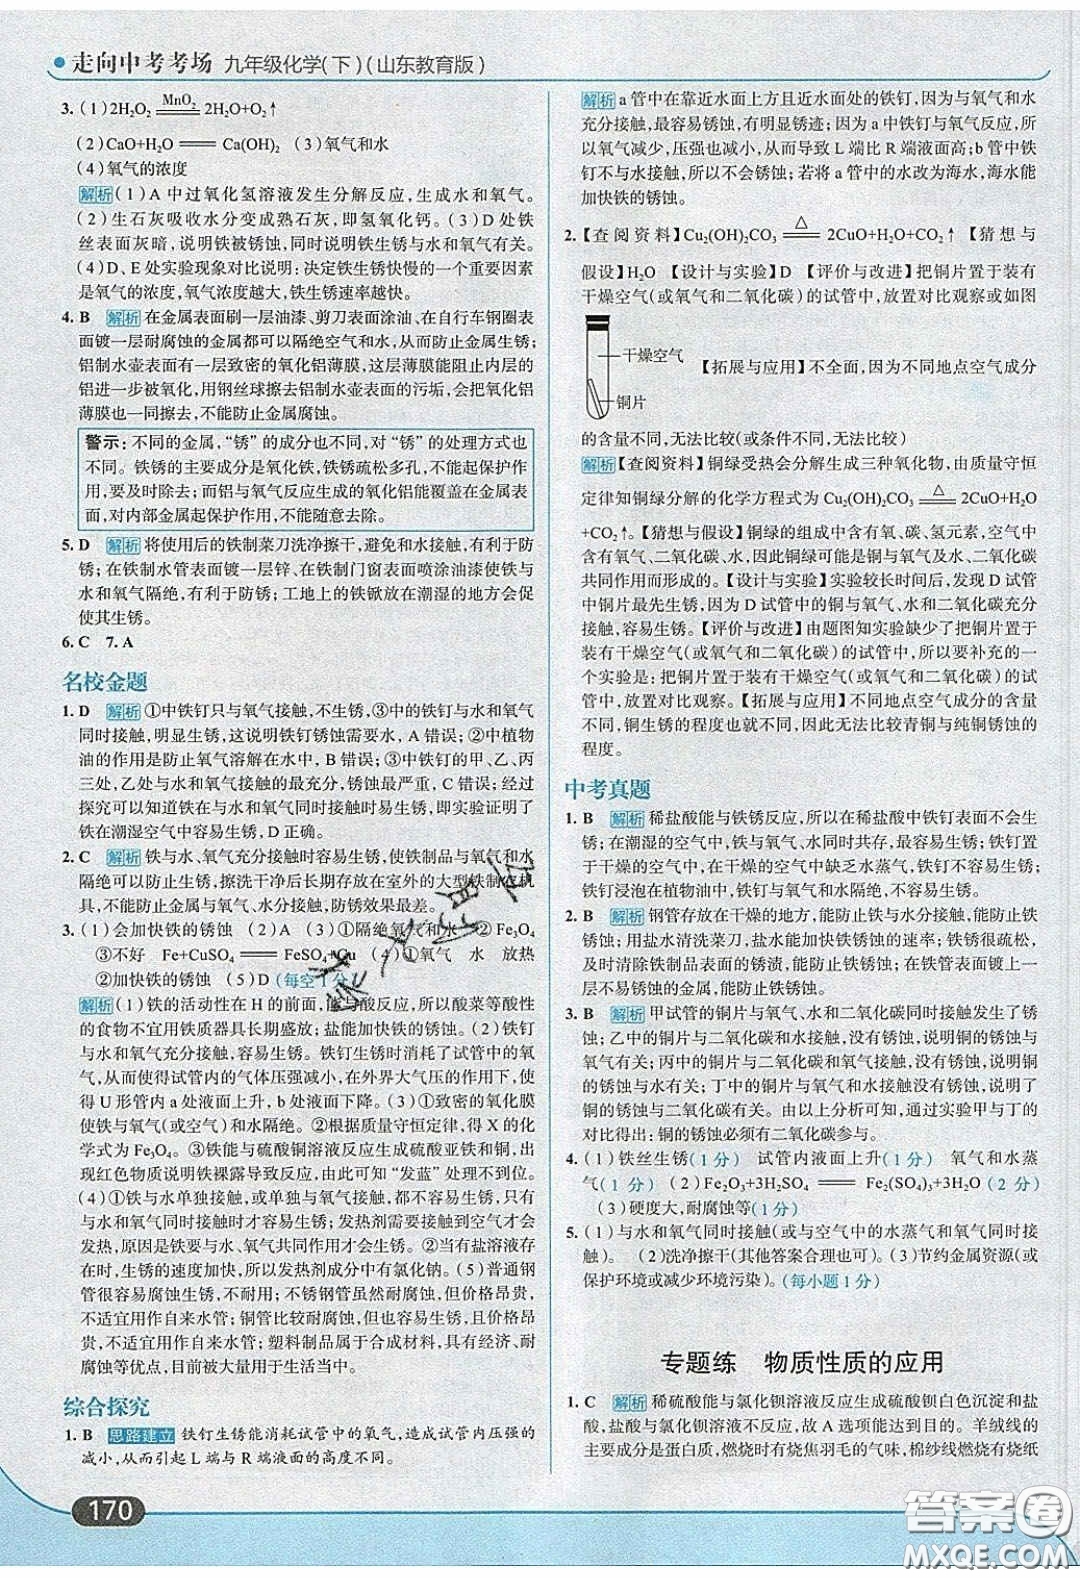 走向中考考场 九年级化学(下)(山东教育版)
3. (1)2H₂O₂ =MnO₂= 2H₂O+O₂↑
(2)CaO+H₂O == Ca(OH)₂ (3)氧气和水
(4)氧气的浓度
解析 (1)A 中过氧化氢溶液发生分解反应,生成水和氧气。
(2)生石灰吸收水分变成熟石灰,即氢氧化钙。(3)D 处铁
丝表面灰暗,说明铁被锈蚀,同时说明铁生锈与水和氧气有关。
(4)D、E 处实验现象对比说明:决定铁生锈快慢的一个重要因素
是氧气的浓度,氧气浓度越大,铁生锈速率越快。
4. B 解析 在金属表面刷一层油漆、剪刀表面涂油、在自行车钢圈表
面镀一层耐腐蚀的金属都可以隔绝空气和水,从而防止金属生锈;
铝制水壶表面有一层致密的氧化铝薄膜,这层薄膜能阻止内层的
铝进一步被氧化,用钢丝球擦去铝制水壶表面的污垢,会把氧化铝
薄膜也一同擦去,不能防止金属腐蚀。
警示:不同的金属,“锈”的成分也不同,对“锈”的处理方式也
不同。铁锈的主要成分是氧化铁,铁锈疏松多孔,不能起保护作
用,要及时除去;而铝与氧气反应生成的氧化铝能覆盖在金属表
面,对内部金属起保护作用,不能随意去除。
5. D 解析 将使用后的铁制菜刀洗净擦干,避免和水接触,有利于防
锈;在铁制水管表面镀一层锌、在铁制门窗表面喷涂油漆使铁与
水和氧气隔绝,有利于防锈;工地上的铁锨放在潮湿的地方会促
使其生锈。
6. C 7. A
名校金题
1. D 解析 ①中铁钉只与氧气接触,不生锈,③中的铁钉与水和氧气
同时接触,明显生锈,这说明铁钉锈蚀需要水,A 错误;②中植物
油的作用是防止氧气溶解在水中,B 错误;③中铁钉的甲、乙、丙
三处,乙处与水和氧气接触的最充分,锈蚀最严重,C 错误;经过
探究可以知道铁在与水和氧气同时接触时易生锈,即实验证明了
铁在潮湿空气中容易生锈,D 正确。
2. C 解析 铁与水、氧气充分接触时容易生锈,使铁制品与氧气和水
隔绝可以防止生锈,擦洗干净后长期存放在室外的大型铁制农机
具,不能防止金属与氧气、水分接触,防锈效果最差。
3. (1)会加快铁的锈蚀 (2)A (3)①隔绝氧气和水 ②Fe₃O₄
③不好 Fe+CuSO₄ == FeSO₄+Cu (4)①氧气 水 放热
②加快铁的锈蚀 (5)D (每空 1 分)
解析 (1)铁的活动性在 H 的前面,能与酸反应,所以酸菜等酸性
的食物不宜用铁质器具长期盛放;盐能加快铁的锈蚀。(2)铁钉
与水和氧气充分接触,容易生锈。铁钉生锈时消耗了试管中的氧
气,从而使得试管内的气体压强减小,在外界大气压的作用下,使
得 U 形管内 a 处液面上升,b 处液面下降。(3)①致密的氧化膜
使铁与氧气(或空气)和水隔绝。②根据质量守恒定律,得 X 的化
学式为 Fe₃O₄。③铁能与硫酸铜溶液反应生成硫酸亚铁和铜,出
现红色物质说明铁裸露导致反应,由此可知“发蓝”处理不到位。
(4)①铁与水单独接触,或者与氧气接触,都不容易生锈,只有
与水和氧气同时接触时才容易生锈;发热剂需要接触到空气才会
发热,原因是铁要与水、氧气共同作用才会生锈。②当有盐溶液存
在时,生锈的速度加快,所以发热剂成分中有氯化钠。(5)普通钢
管很容易生锈,不耐用;不锈钢管虽然耐腐蚀,但价格昂贵,
不适宜用作自来水管;铜管比较耐腐蚀,但也容易生锈,且价格昂
贵,不适宜用作自来水管;塑料制品属于合成材料,具有经济、耐
腐蚀等优点,目前被大量用于生活当中。
综合探究
1. B 思路建立 铁钉生锈能消耗试管中的氧气,造成试管内压强的
减小,从而引起 L 端与 R 端液面的高度不同。
170
解析 a 管中在靠近水面上方且近水面处的铁钉,因为与氧气和水
充分接触,最容易锈蚀,有明显锈迹;因为 a 中铁钉与氧气反应,所
以氧气减少,压强也减小,从而导致 L 端比 R 端液面高;b 管中铁
钉不与水接触,所以不会锈蚀;若将 a 管中的水改为海水,海水能
加快铁的锈蚀。
2. 【查阅资料】Cu₂(OH)₂CO₃ =△= 2CuO+H₂O+CO₂↑ 【猜想与
假设】H₂O 【设计与实验】D 【评价与改进】把铜片置于装有
干燥空气(或氧气和二氧化碳)的试管中,放置对比观察或如图
干燥空气
【拓展与应用】不全面,因为不同地点空气成分
铜片
的含量不同,无法比较(或条件不同,无法比较)
解析 【查阅资料】铜绿受热会分解生成三种氧化物,由质量守恒
定律知铜绿分解的化学方程式为 Cu₂(OH)₂CO₃ =△= 2CuO+H₂O
+CO₂↑。【猜想与假设】铜绿的组成中含有氧、碳、氢元素,空气中
含有氧气、二氧化碳、水,因此铜绿可能是铜与氧气及水、二氧化碳
共同作用而形成的。【设计与实验】实验较长时间后,发现 D 试管
中铜片最先生锈,因为 D 试管中的铜与氧气、水和二氧化碳充分
接触,容易生锈。【评价与改进】由题图知实验缺少了把铜片置于
装有干燥空气(或氧气和二氧化碳)的试管中,所以要补充的一
个实验是:把铜片置于装有干燥空气(或氧气和二氧化碳)的试
管中,放置对比观察。【拓展与应用】不同地点空气成分的含量
不同,铜生锈的程度也就不同,因此无法比较青铜与纯铜锈蚀的
程度。
中考真题
1. B 解析 稀盐酸能与铁锈反应,所以在稀盐酸中铁钉表面不会生
锈;在潮湿的空气中,铁与氧气、水同时共存,最易生锈;铁钉置
于干燥的空气中,在干燥的空气中缺乏水蒸气,铁钉不易生锈;
铁钉浸泡在植物油中,铁钉与氧气和水隔绝,不容易生锈。
2. B 解析 钢管存放在干燥的地方,能防止铁与水分接触,能防止铁
锈蚀;用盐水清洗菜刀,盐水能加快铁锈蚀的速率;铁锈很疏松,
及时清除铁制品表面的锈渍,能防止铁锈蚀;在铁管表面镀上一
层不易锈蚀的金属,能防止铁锈蚀。
3. B 解析 甲试管的铜片与氧气、水和二氧化碳同时接触发生了锈
蚀;乙中的铜片与二氧化碳和水接触,没有锈蚀,说明铜的锈蚀与
氧气有关;丙中的铜片与二氧化碳和氧气接触,没有锈蚀,说明铜
的锈蚀与水有关;丁中的铜片与氧气和水接触没有锈蚀,说明了
铜的锈蚀与二氧化碳有关。由以上分析可知,通过实验甲与丁的
对比得出:铜的锈蚀必须有二氧化碳参与。
4. (1)铁丝生锈(1 分) 试管内液面上升(1 分) 氧气和水蒸
气(1 分) (2)Fe₂O₃+3H₂SO₄ == Fe₂(SO₄)₃+3H₂O (2 分)
(3)硬度大,耐腐蚀等(1 分)
5. (1)与水和氧气同时接触(或与空气中的水蒸气和氧气同时接
触)。 (2)洗净擦干(其他答案合理也可)。(3)节约金属资源(或
保护环境或减少环境污染)。(每小题 1 分)
专题练 物质性质的应用
1. C 解析 稀硫酸能与氯化钡溶液反应生成硫酸钡白色沉淀和盐
酸,盐酸与氯化钡溶液不反应,故 A 选项能达到目的。羊绒线的
主要成分是蛋白质,燃烧时有烧焦羽毛的气味,棉纱线燃烧有烧纸
答案圈
MXQE.COM